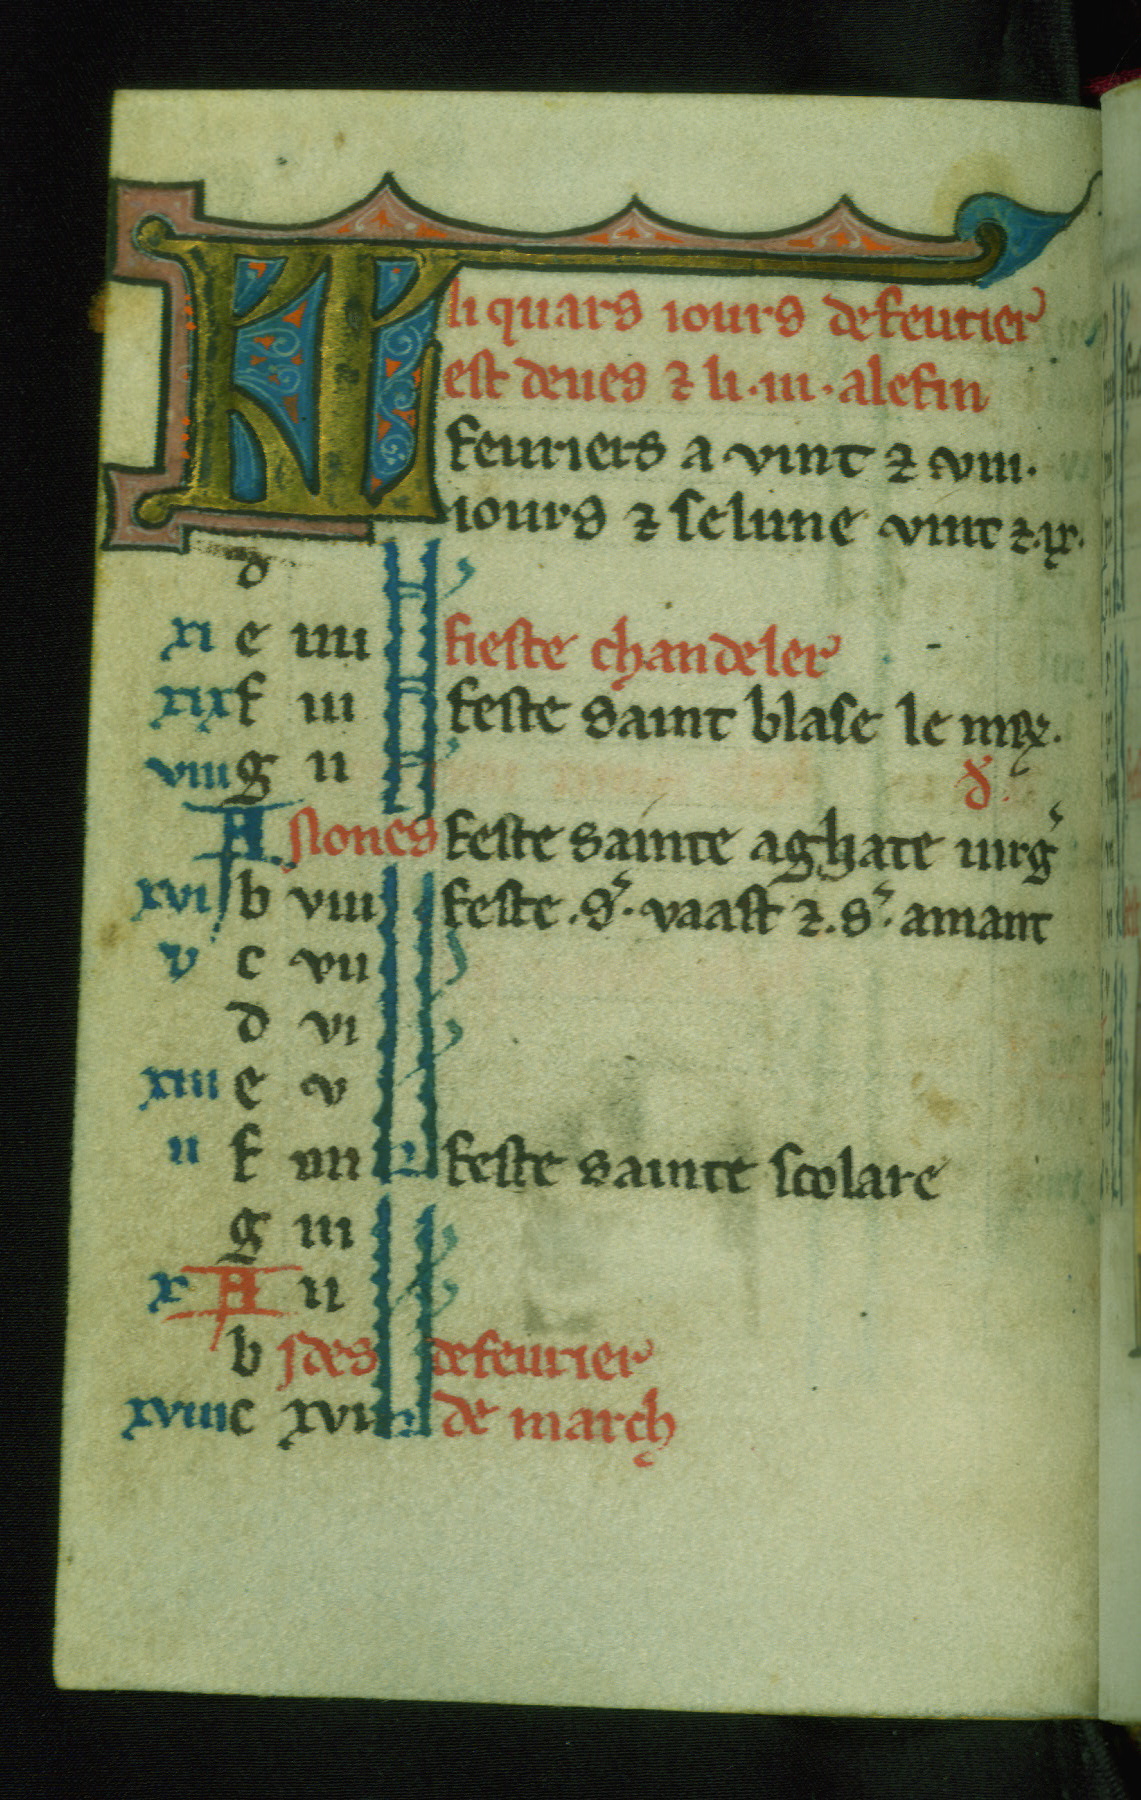 KL li quars iours defeurier
est deues ⁊ li · iii · alefin
feuriers a vint ⁊ viii ·
iours ⁊ selune vint ⁊ · ix ·
d
xi e iiii fieste chandeler
xix f iii feste saint blase le
viii g ii
A nones feste sainte aghate uirg
xvi b viii feste · s · vaast ⁊ · s · amant
v c vii
d vi
xiii e v
ii f iiii feste sainte scolare
g iii
x A ii
b ydes defeurier
xviii c xvi de march